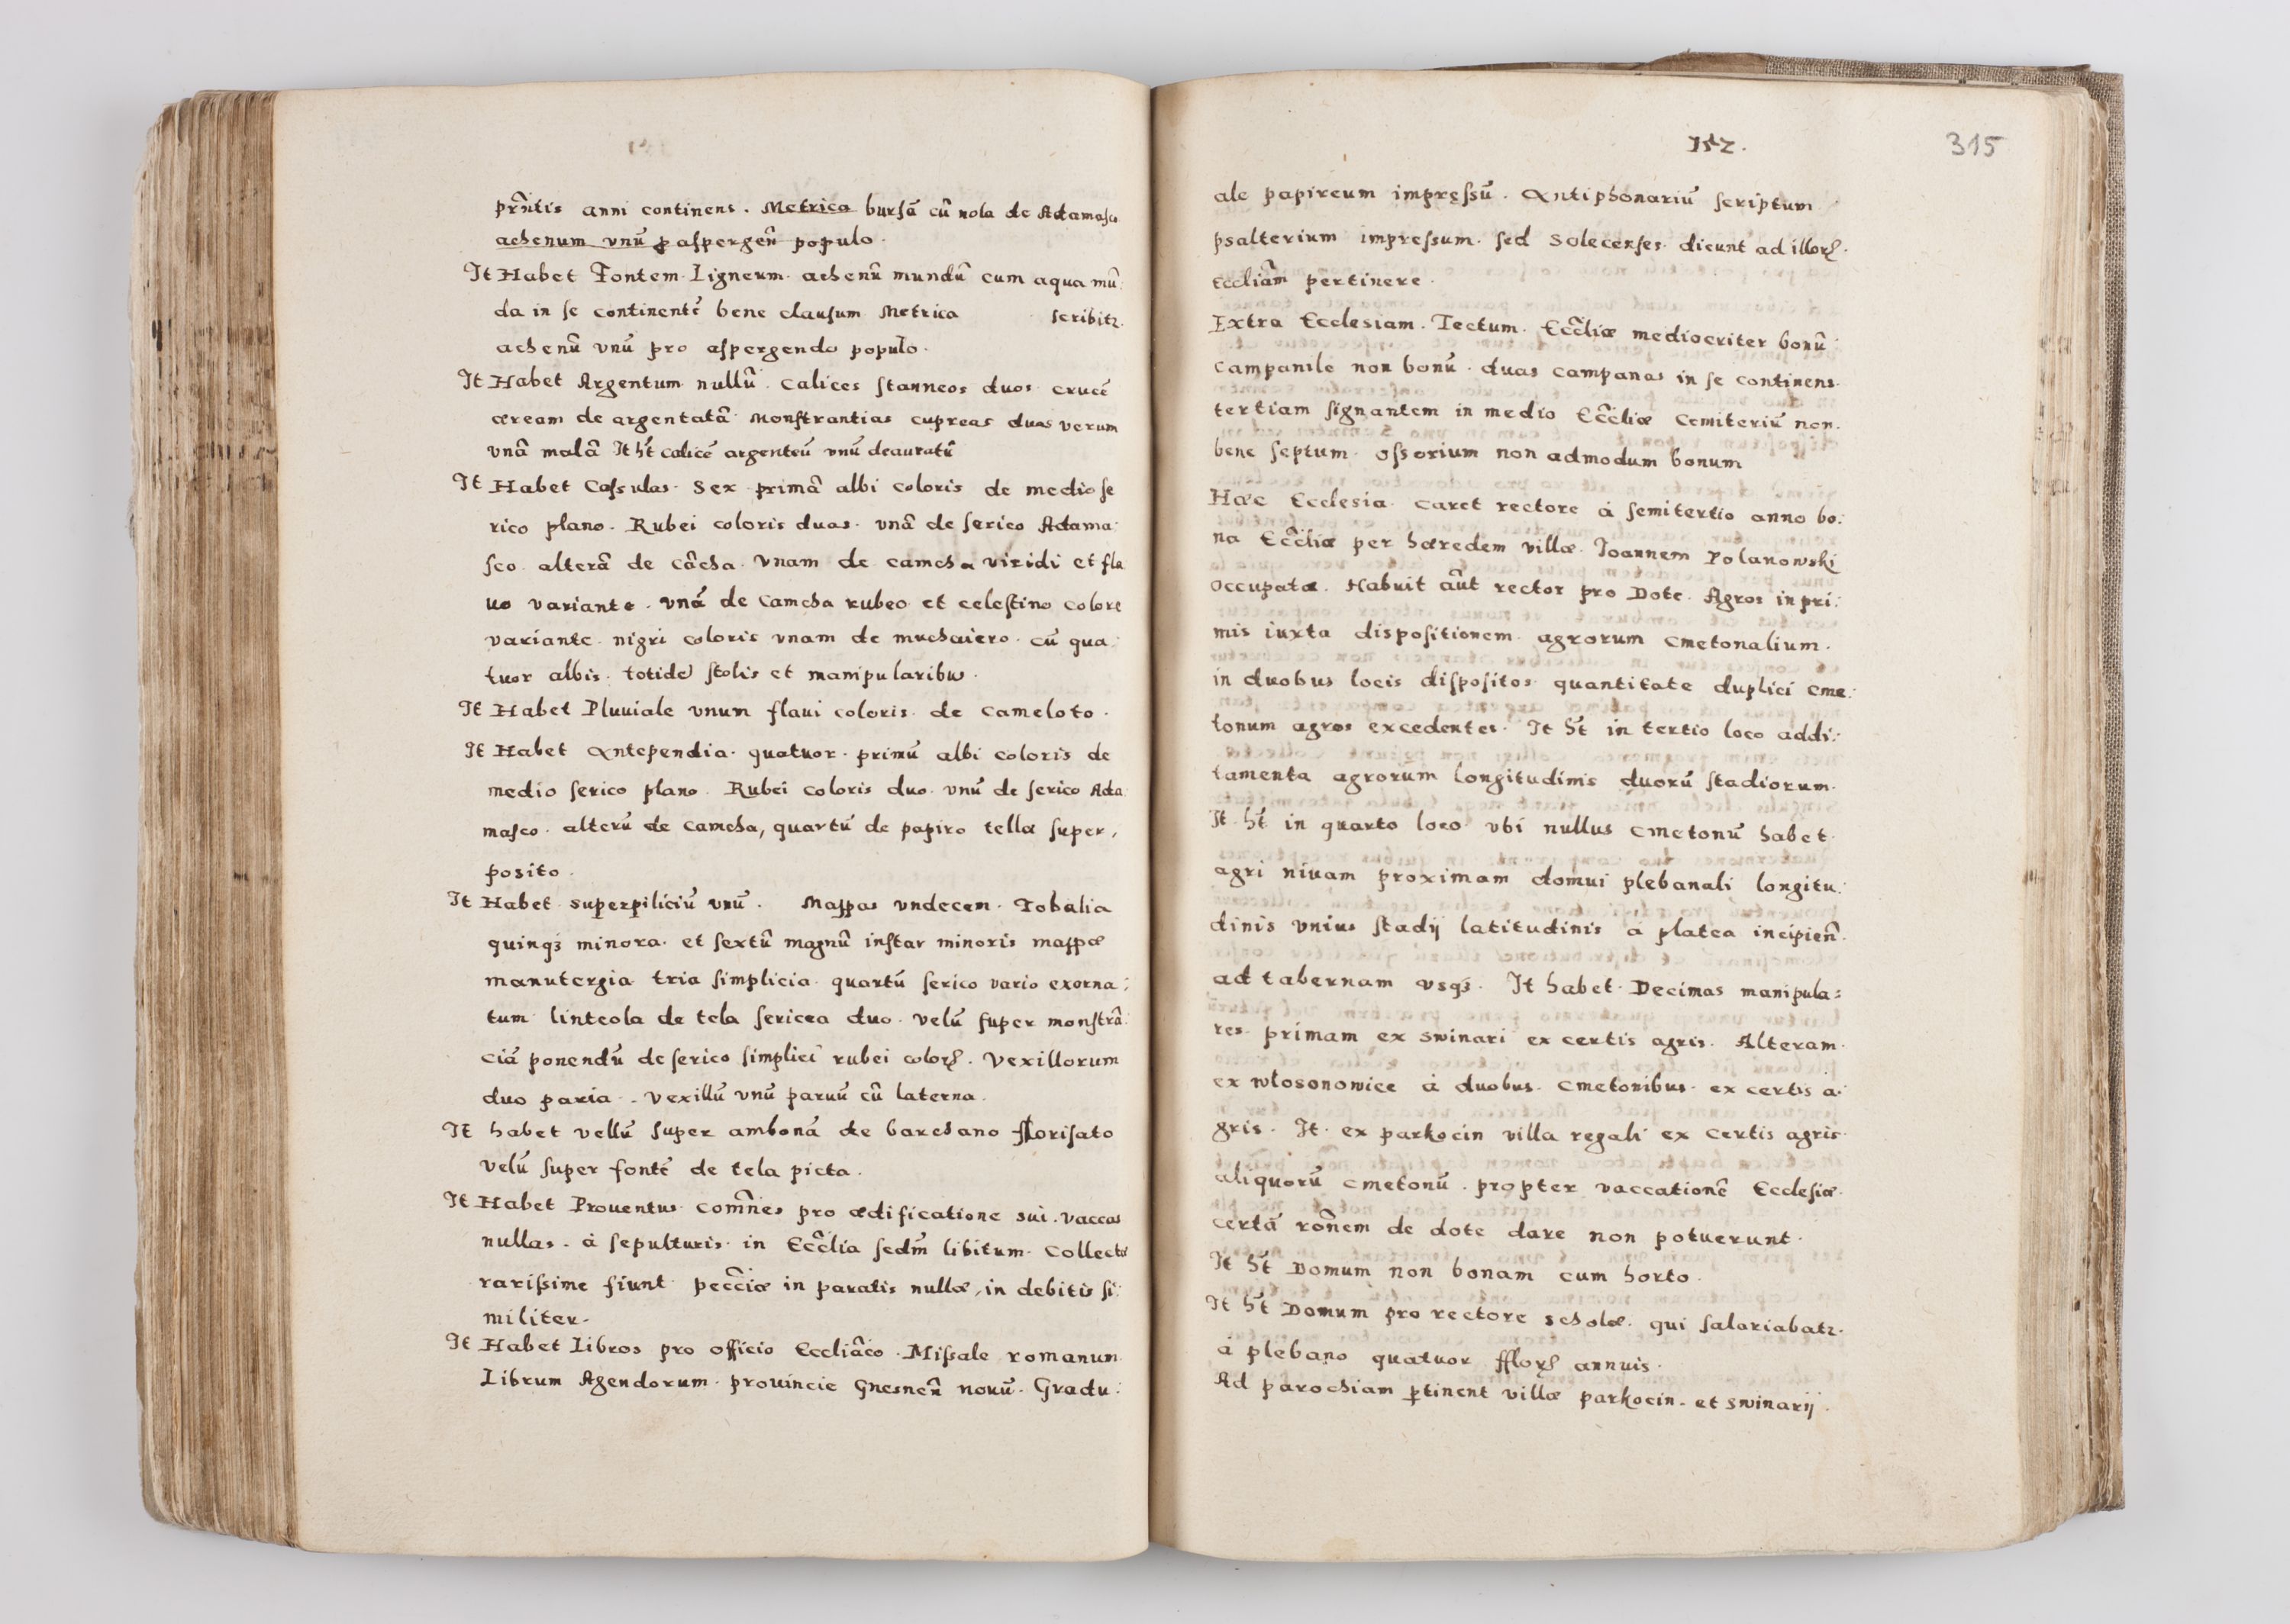 prñtis anni continens. Metrica bursã cũ nola de Adamasco
achenum vnũ p aspergeñ populo.
It Habet Fontem Ligneum achenũ mundũ cum aqua mũ:
da in se continentẽ bene clausum Metrica scribitr.
achenũ vnũ pro aspergendo populo.
It Habet Argentum nullũ. Calices stanneos duos crucẽ
æream de argentatã Monstrantias cupreas duas verum
vnã malã It ht calicẽ argenteũ vnũ deauratũ
It Habet Cassulas Sex primã albi coloris de medio se
rico plano. Rubei coloris duas. vnã de serico Adama:
sco alterã de cãcha. Vnam de camcha viridi et fla
uo variante. vnã de Camcha rubeo et celestino colore
variante nigri coloris vnam de muchaiero. cũ qua:
tuor albis. totidẽ stolis et manipularibus.
It Habet Pluuiale vnum flaui coloris de Cameloto.
It Habet Antependia. quatuor. primũ albi coloris de
medio serico plano. Rubei coloris duo. vnũ de serico Ada:
masco. alterũ de Camcha, quartũ de papiro tellæ super,
posito.
It Habet superpiliciũ vnũ. Mappas vndecem. Tobalia
quinq3 minora. et sextũ magnũ instar minoris mappæ
manutergia tria simplicia quartũ serico vario exorna:
tum linteola de tela sericea duo. velũ super monstrã:
ciã ponendũ de serico simplici rubei colorꝭ. Vexillorum
duo paria. Vexillũ vnũ paruũ cũ laterna.
It habet vellũ super ambonã de barchano florisato
velũ super fontẽ de tela picta.
It Habet Prouentus com̃nes pro ædificatione sui. vaccas
nullas. à sepulturis in Ecc̃lia sedm̃ libitum. Collectæ
rarissime fiunt pecc̃iæ in paratis nullæ, in debitis si:
militer.
It Habet Libros pro officio Eccliãco. Missale romanum
Librum Agendorum. prouincie Gnesneñ nouũ. Gradu:
152.
315
ale papireum impressũ. Antiphonariũ scriptum
psalterium impressum. sed Solecenses dicunt ad illorꝭ.
Eccliãm pertinere.
Extra Ecclesiam. Tectum. Ecc̃liæ mediocriter bonũ
Campanile non bonũ. duas campanas in se continens.
tertiam signantem in medio Ecc̃liæ Cemiteriũ non.
bene septum. Ossorium non admodum bonum
Hæc Ecclesia caret rectore à semitertio anno bo:
na Ecc̃liæ per hæredem villæ. Ioannem Polanowski
occupata. Habuit aũt rector pro Dote. Agros in pri:
mis iuxta dispositionem agrorum Cmetonalium.
in duobus locis dispositos quantitate duplici Cme:
tonum agros excedentes. It ht in tertio loco addi:
tamenta agrorum longitudinis duorũ stadiorum.
It ht in quarto loco vbi nullus Cmetonũ habet.
agri niuam proximam domui plebanali longitu:
dinis vnius stadij latitudinis à platea incipieñ.
ad tabernam vsq3. It habet Decimas manipula=
res primam ex swinari ex certis agris. Alteram.
ex wlosonowice à duobus Cmetonibus. ex certis a:
gris. It. ex parkocin villa regali ex certis agris
aliquorũ Cmetonũ. propter vaccationẽ Ecclesiæ.
certã rõnem de dote dare non potuerunt.
It ht Domum non bonam cum horto.
It ht Domum pro rectore scholæ. qui salariabatr.
à plebano quatuor fflorꝭ annuis.
Ad parochiam ptinent villæ parkocin. et swinarij.